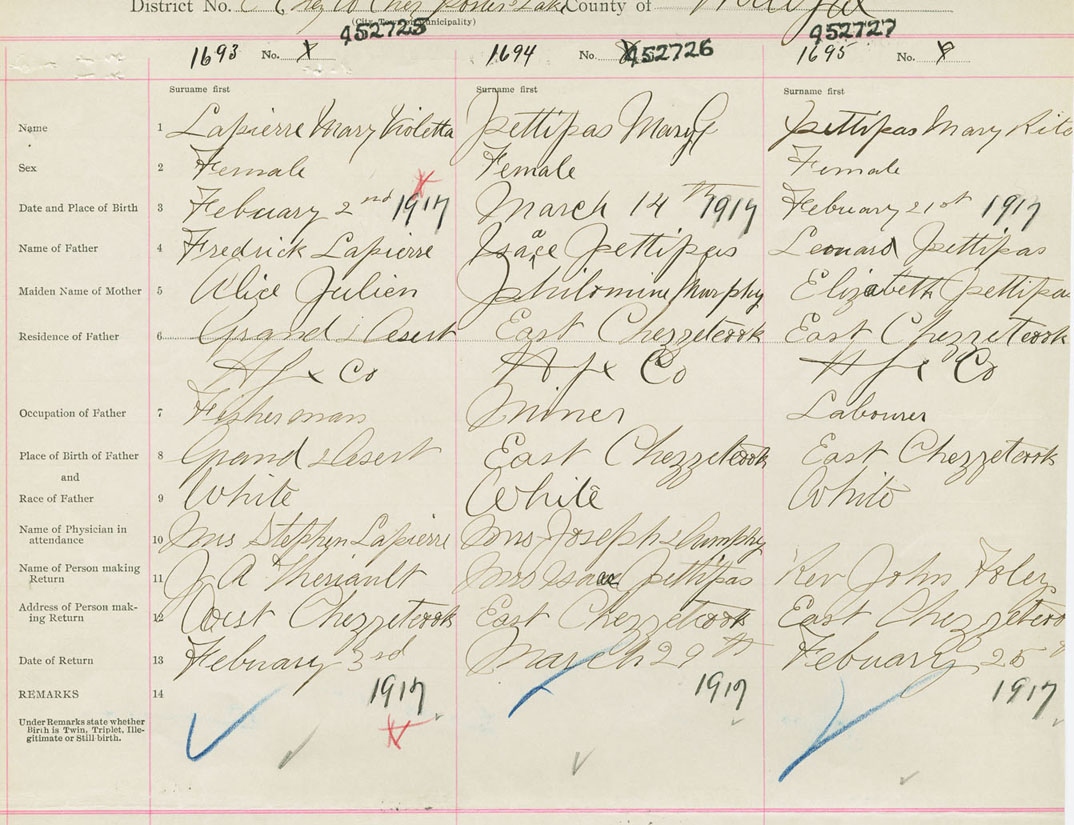 District No. County of Halifax
(City, Town or Municipality)
452725 452726 452727
1693 No. 1694 No. 1695 No.
Surname first Surname first Surname first
Name 1 Lapierre Mary Violetta Pettipas Mary G Pettipas Mary Rita
Sex 2 Female Female Female
Date and Place of Birth 3 Febuary 2nd 1917 March 14th 1917 Febuary 21st 1917
Name of Father 4 Fredrick Lapierre Isaace Pettipas Leonard Pettipas
Maiden Name of Mother 5 Alice Julien Philomine Murphy Elizabeth Pettipas
Residence of Father 6 Grand Desert East Chezzetcook East Chezzetcook
Hfx Co Hfx Co Hfx Co
Occupation of Father 7 Fisherman Miner Labourer
Place of Birth of Father 8 Grand Desert East Chezzetcook East Chezzetcook
and
Race of Father 9 White White White
Name of Physician in
attendance 10 Mrs Stephen Lapierre Mrs Joseph
Name of Person making
Return 11 J A Theriault Mrs Isaac Pettipas Rev John Foley
Address of Person mak-
ing Return 12 West Chezzetcook East Chezzetcook East Chezzetcook
Date of Return 13 Febuary 3rd March 29th Febuary 25th
REMARKS 14 1917 1917 1917
Under Remarks state whether
Birth is Twin, Triplet, Ille-
gitimate or Still-birth.